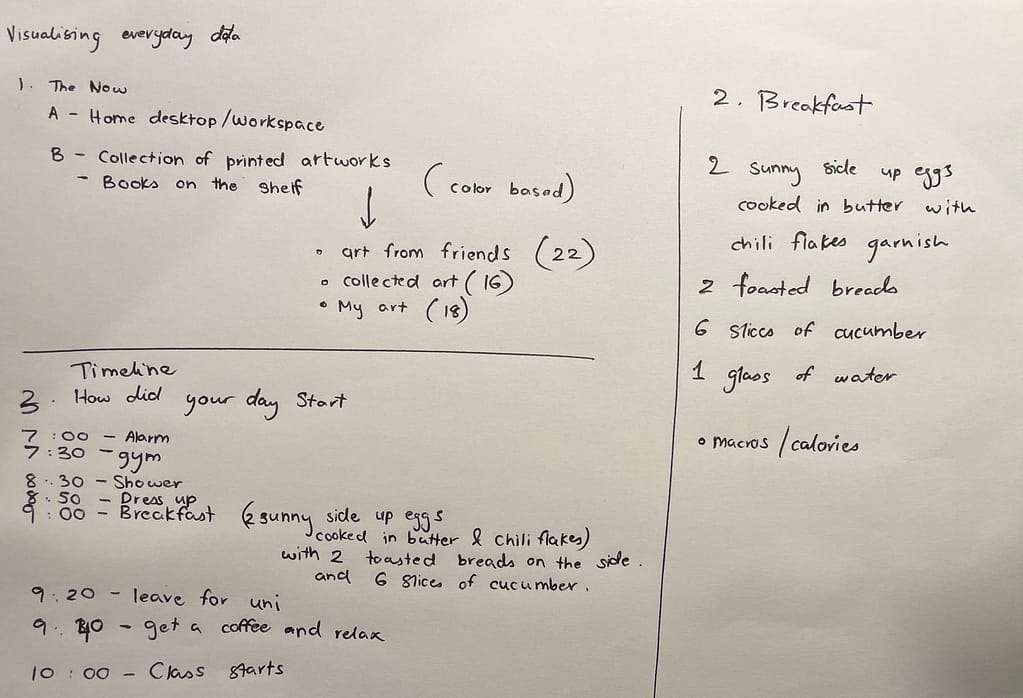 Visualising everyday data
1. The Now
A - Home desktop/workspace
B - Collection of printed artworks
- Books on the shelf
(color based)
• art from friends (22)
• collected art (16)
• My art (18)
Timeline
3. How did your day Start
7:00 - Alarm
7:30 - gym
8:30 - Shower
8:50 - Dress up
9:00 - Breakfast (2 sunny side up eggs
cooked in butter & chili flakes)
with 2 toasted breads on the side.
and 6 slices of cucumber.
9:20 - leave for uni
9:40 - get a coffee and relax
10:00 - Class starts
2. Breakfast
2 sunny side up eggs
cooked in butter with
chili flakes garnish
2 toasted breads
6 slices of cucumber
1 glass of water
• macros/calories